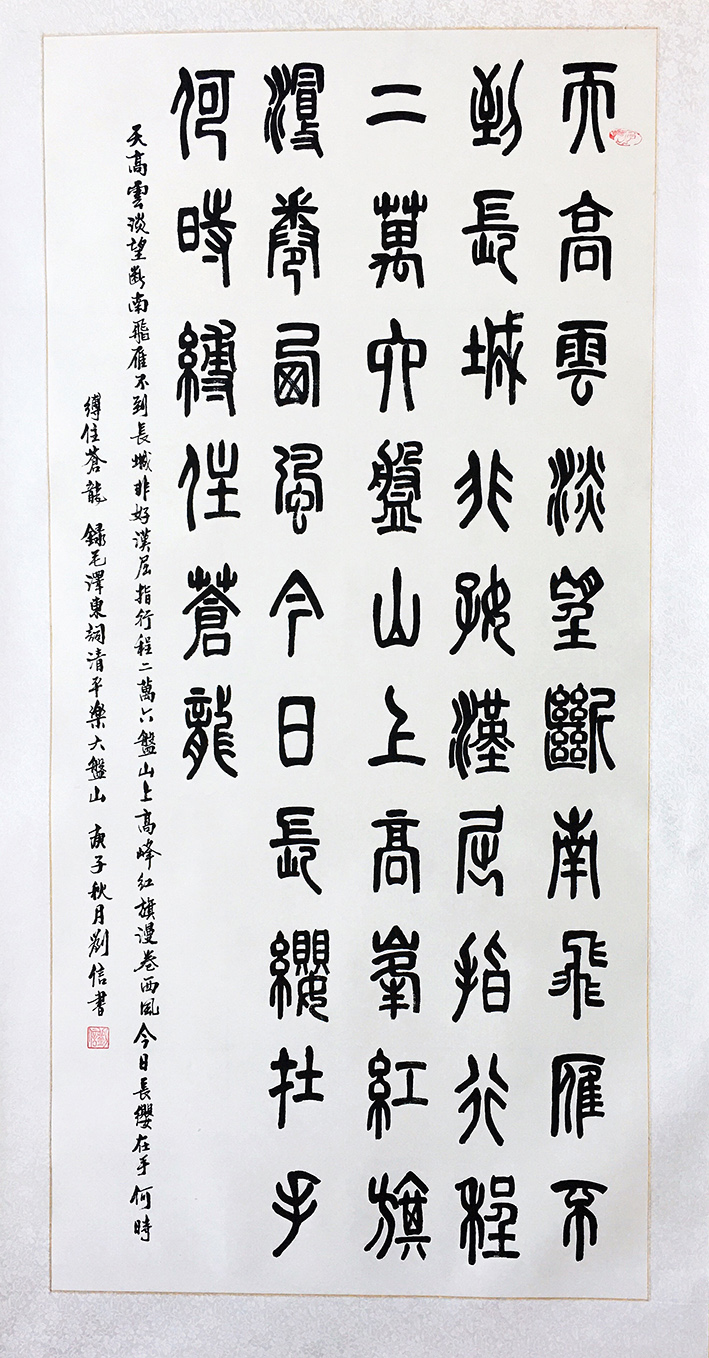 天高雲淡望斷南飛雁不
到長城非好漢屈指行程
二萬六盤山上高峯紅旗
漫卷西風今日長纓在手
何時縛住蒼龍
天高雲淡望斷南飛雁不到長城非好漢屈指行程二萬六盤山上高峰紅旗漫卷西風今日長纓在手何時
縛住蒼龍 録毛澤東詞清平樂六盤山 庚子秋月劉信書